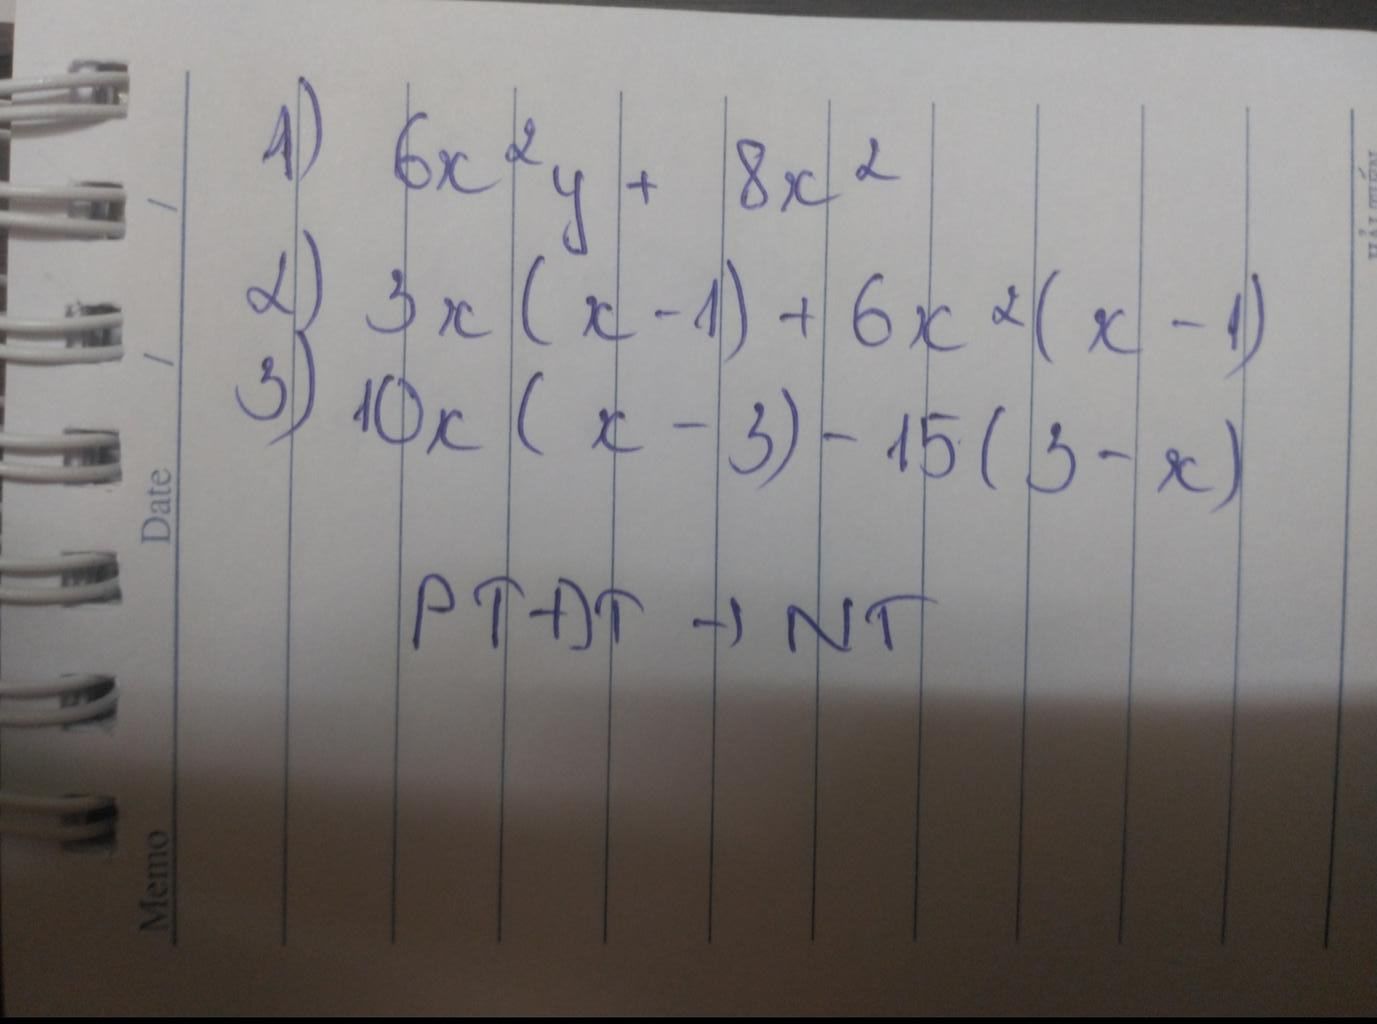 1) 6x²y + 8x²
2) 3x(x-1) + 6x²(x-1)
3) 10x(x-3) - 15(3-x)
PTĐT → NT
Date / /
Memo